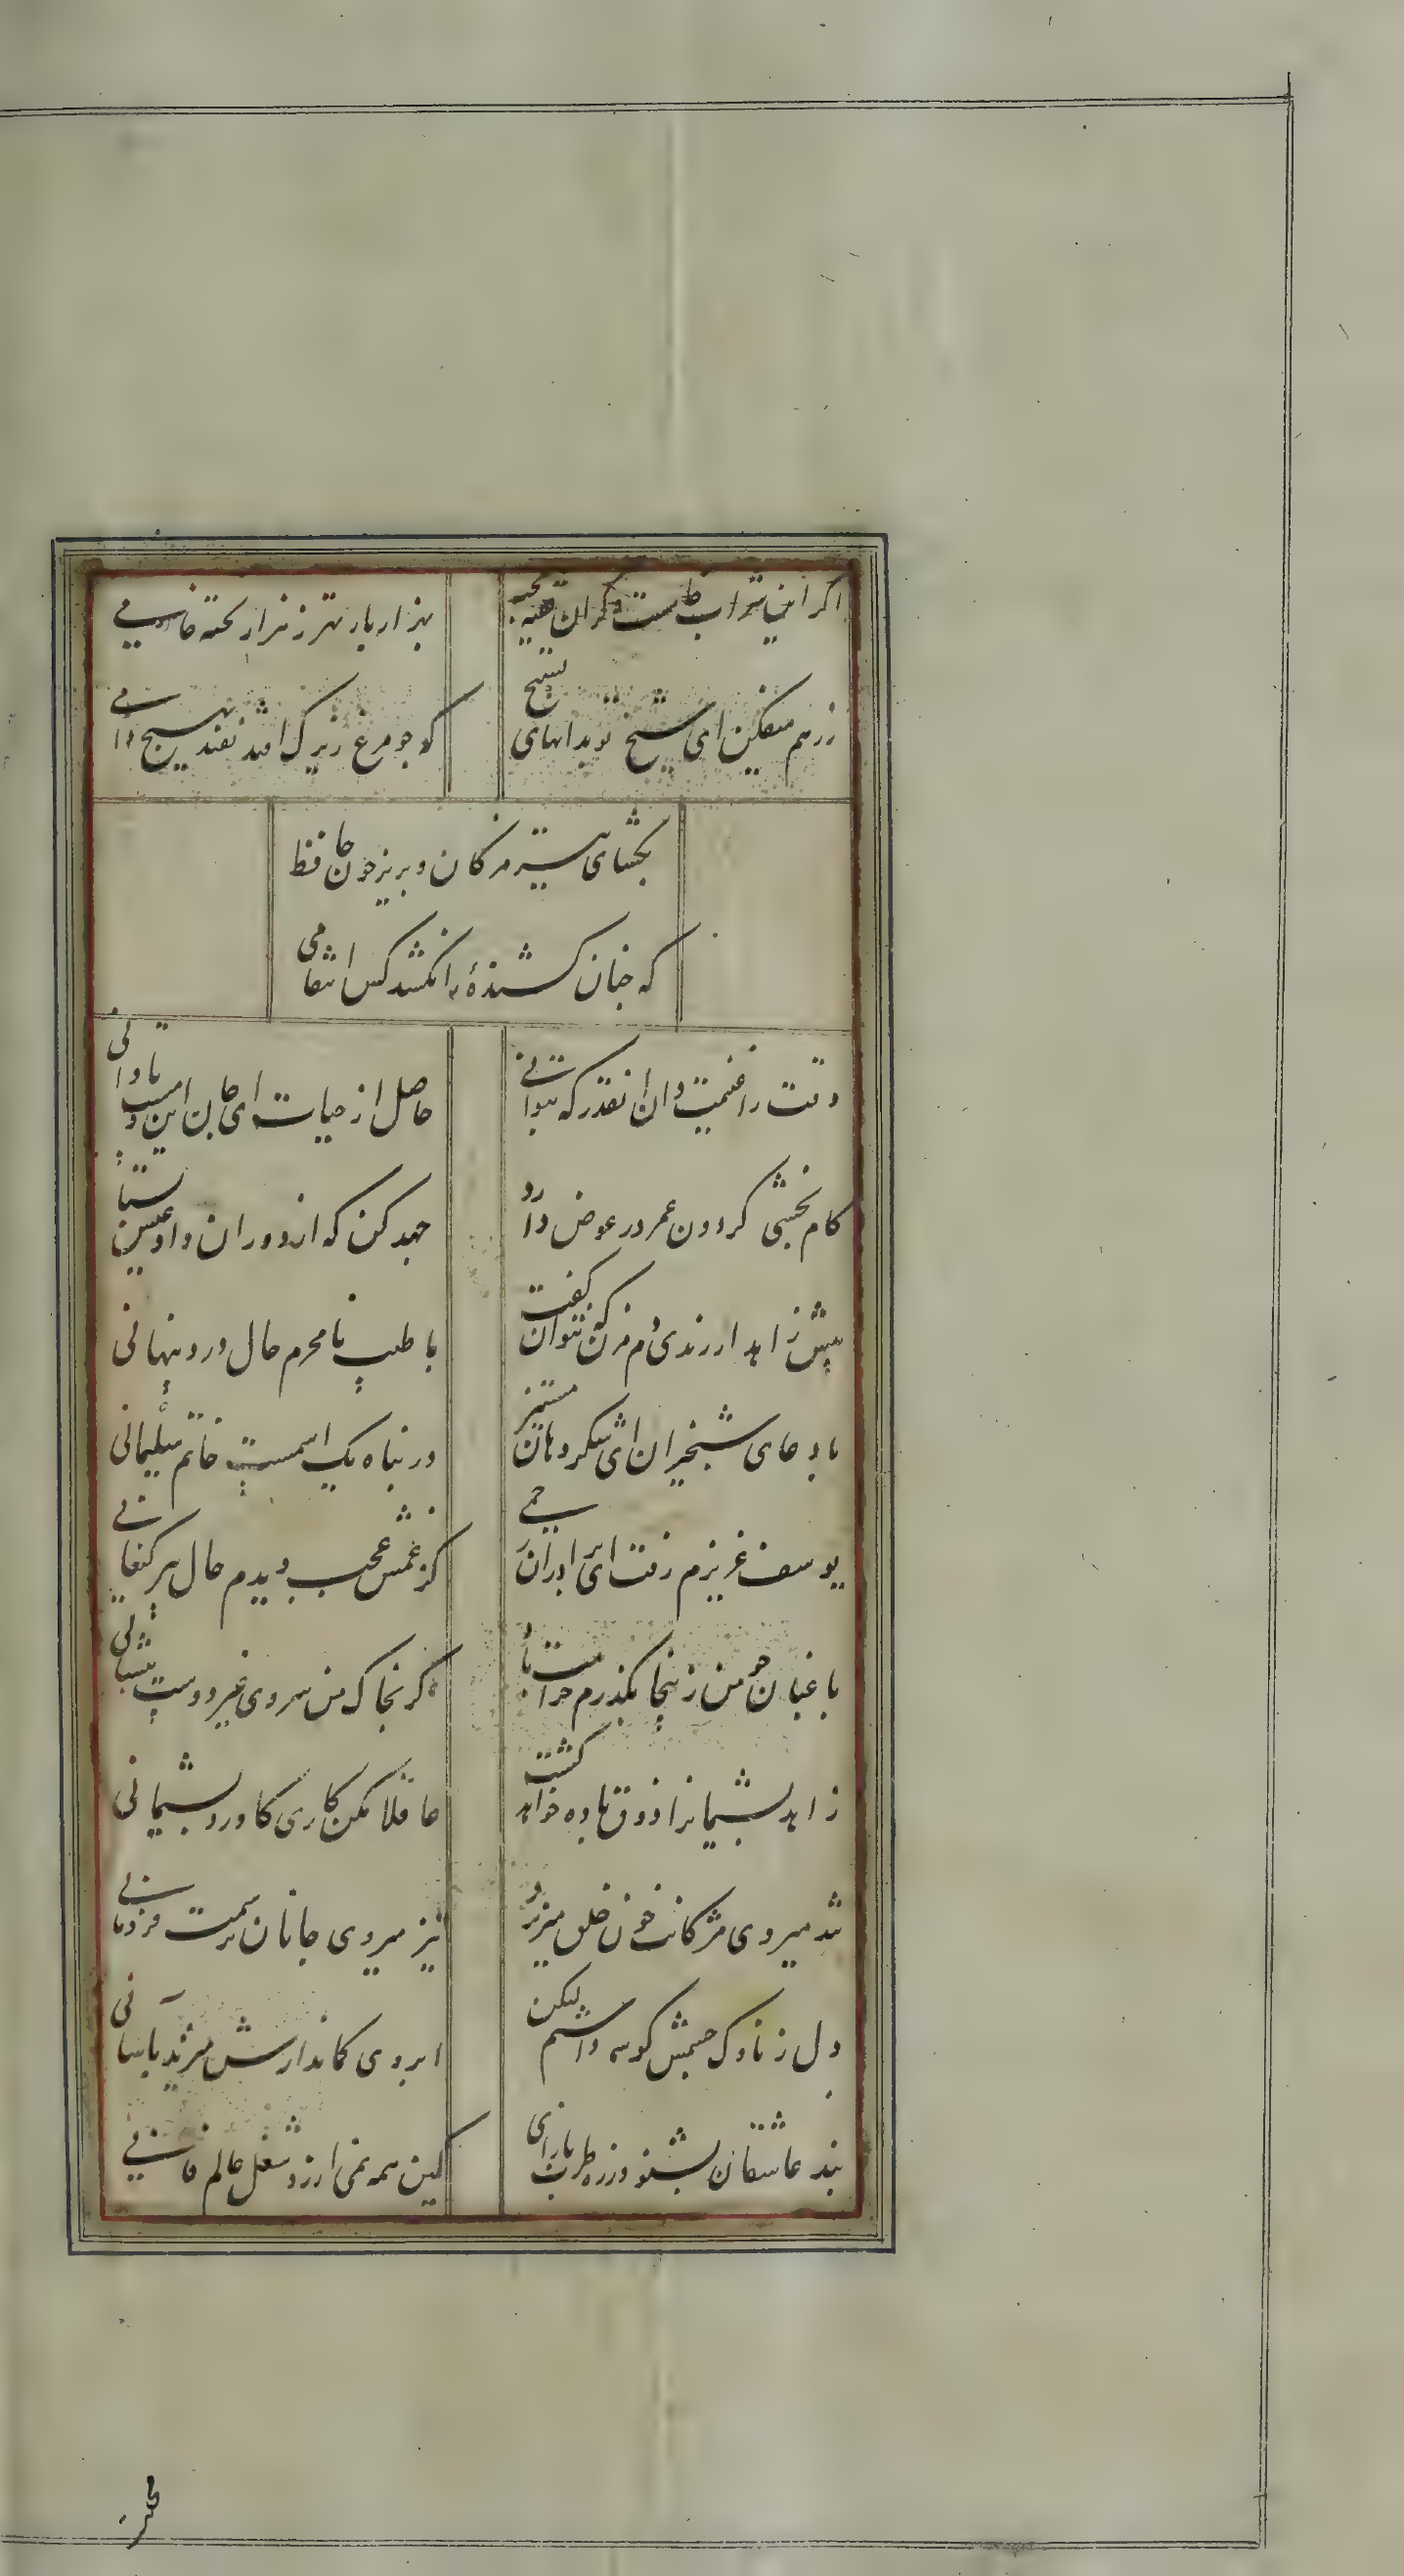 اگر این شراب خامست وگر آن فقیه پخته
هزار بار بهتر ز هزار پخته خامی
ز رهم میفکن ای شیخ تو بدانهای تسبیح
که چو مرغ زیرک افتد نفتد بهیچ دامی
بگشای تیر مژگان و بریز خون حافظ
که چنان کشندهٔ را نکشد کس انتقامی
وقت را غنیمت دان آنقدر که بتوانی
حاصل از حیات ای جان این دمست تا دانی
کام بخشی گردون عمر در عوض دارد
جهد کن که از دوران داد عیش بستانی
پیش زاهد از رندی دم مزن که نتوان گفت
با طبیب نامحرم حال درد پنهانی
با دعای شبخیزان ای شکردهان مستیز
در پناه یک اسمست خاتم سلیمانی
یوسف عزیزم رفت ای برادران رحمی
کز غمش عجب دیدم حال پیر کنعانی
باغبان چو من زینجا بگذرم حرامت باد
گر بخاک من سروی غیر دوست بنشانی
زاهد پشیمانرا ذوق باده خواهد کشت
عاقلا مکن کاری کاورد پشیمانی
شد میروی مژگانت خون خلق میریزد
تیز میروی جانان ترسمت فرومانی
دل ز ناوک چشمش گوش داشتم لیکن
ابروی کماندارش میزند بپیشانی
پند عاشقان بشنو وز ره طرب بازآی
کین همه نمی ارزد شغل عالم فانی